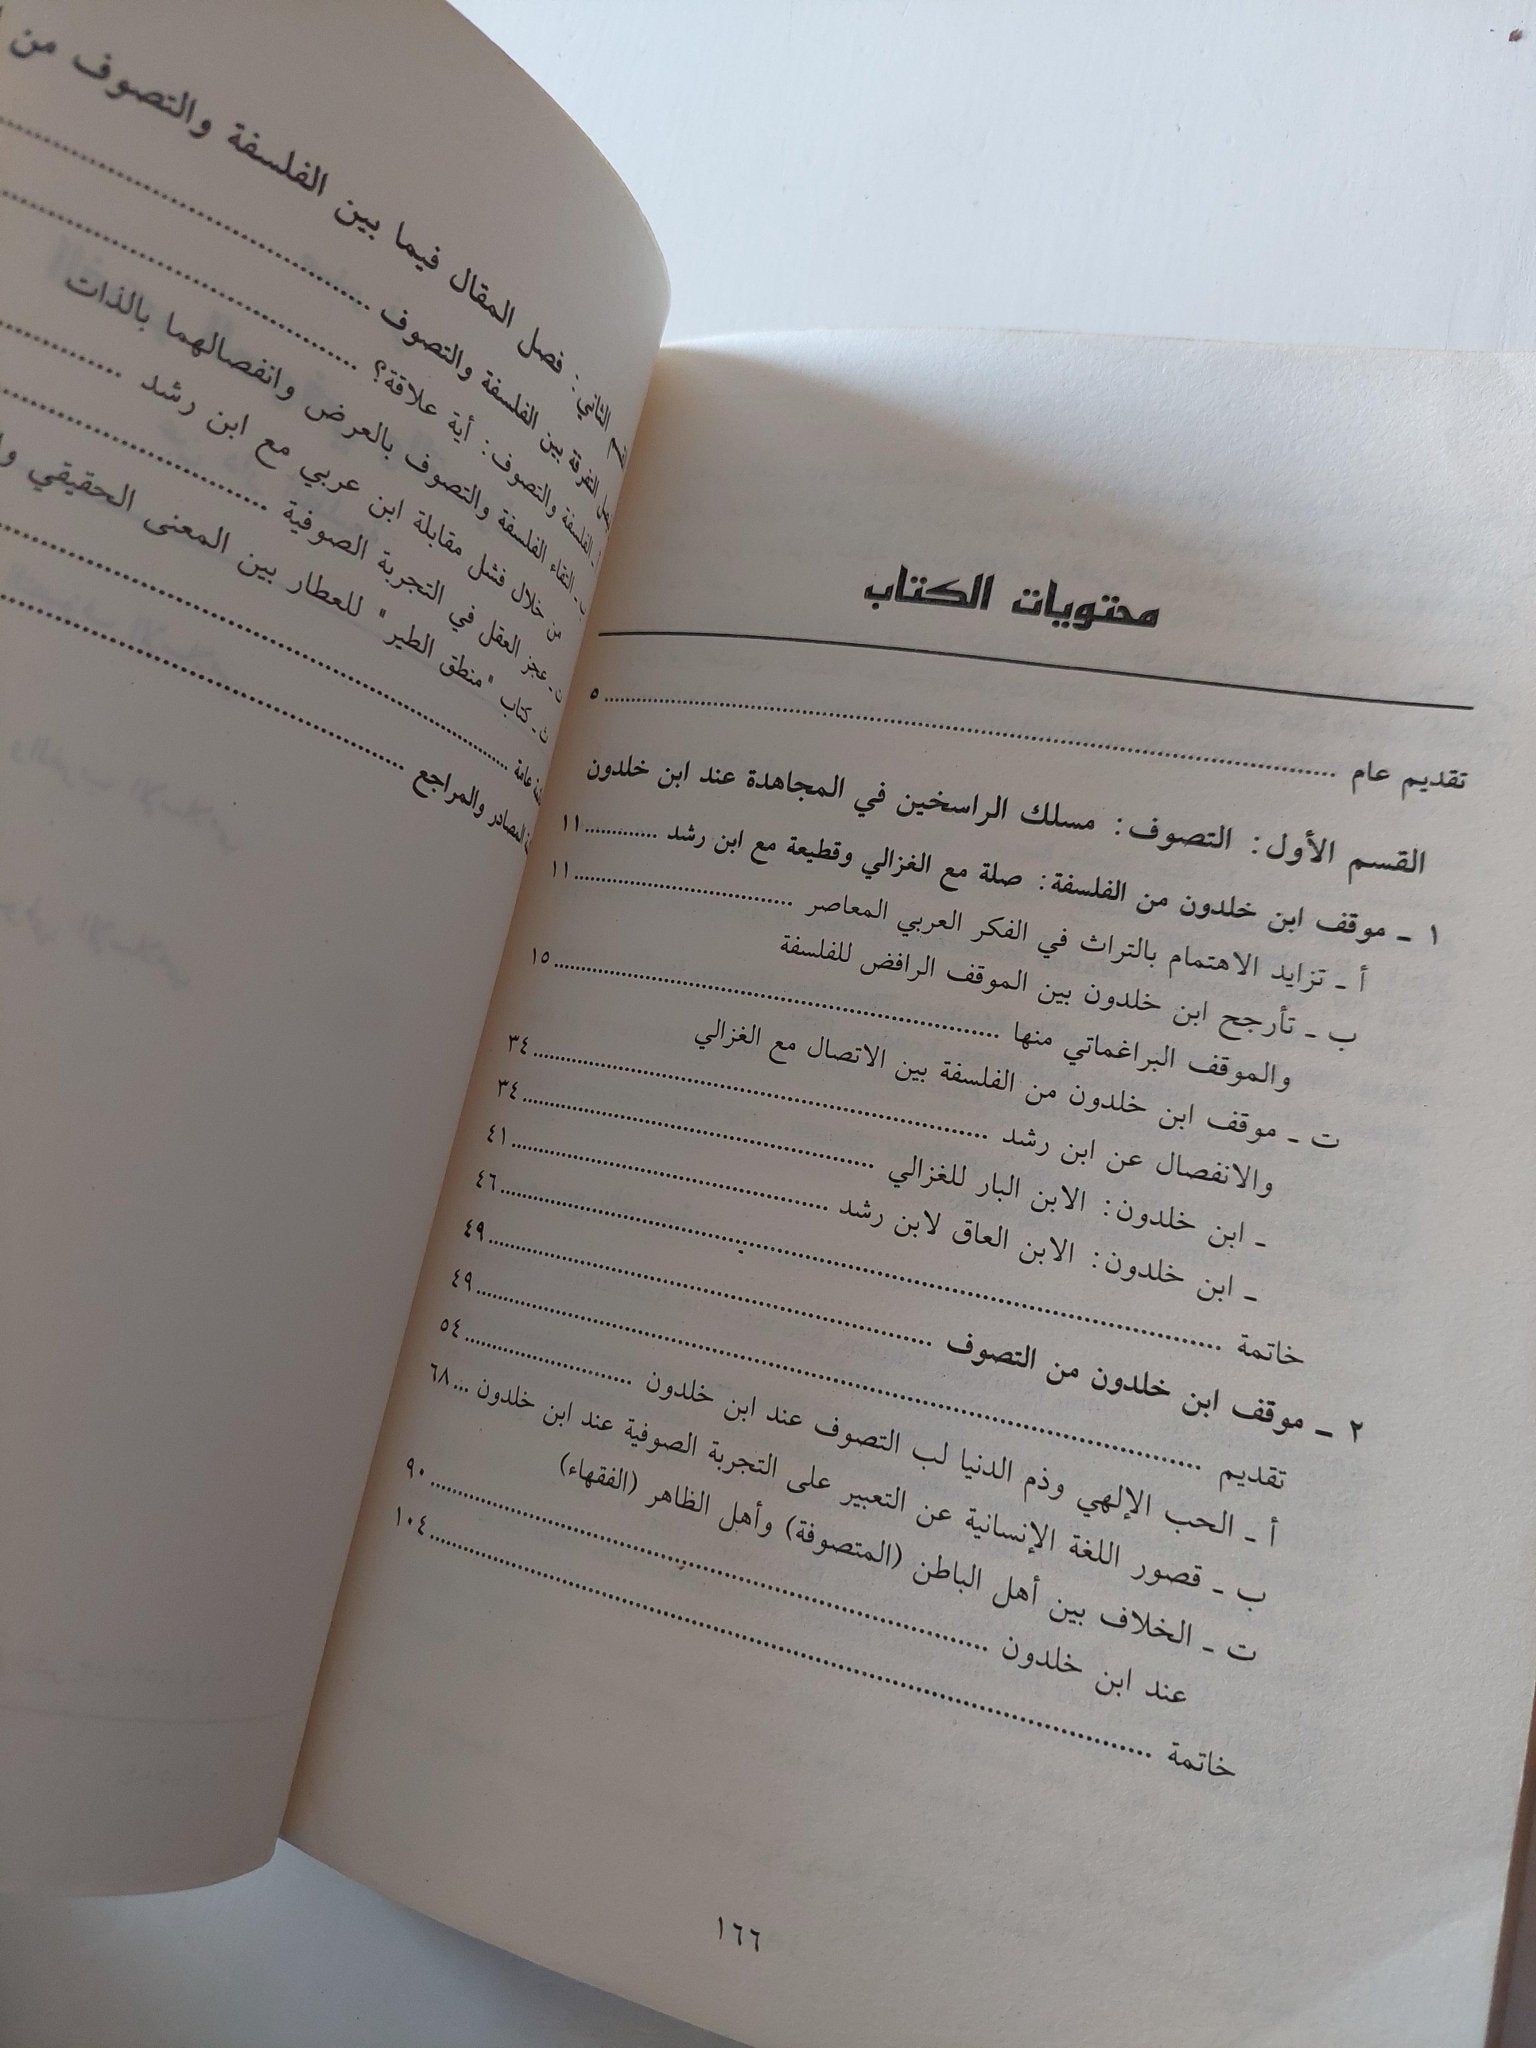 محتويات الكتاب
تقديم عام ........ ٥
القسم الأول: التصوف: مسلك الراسخين في المجاهدة عند ابن خلدون
١ ـ موقف ابن خلدون من الفلسفة: صلة مع الغزالي وقطيعة مع ابن رشد ........ ١١
أ ـ تزايد الاهتمام بالتراث في الفكر العربي المعاصر ........ ١١
ب ـ تأرجح ابن خلدون بين الموقف الرافض للفلسفة
والموقف البراغماتي منها ........ ١٥
ت ـ موقف ابن خلدون من الفلسفة بين الاتصال مع الغزالي
والانفصال عن ابن رشد ........ ٣٤
ـ ابن خلدون: الابن البار للغزالي ........ ٣٤
ـ ابن خلدون: الابن العاق لابن رشد ........ ٤١
خاتمة ........ ٤٦
٢ ـ موقف ابن خلدون من التصوف ........ ٤٩
تقديم ........ ٤٩
أ ـ الحب الإلهي وذم الدنيا لب التصوف عند ابن خلدون ........ ٥٤
ب ـ قصور اللغة الإنسانية عن التعبير على التجربة الصوفية عند ابن خلدون ... ٦٨
ت ـ الخلاف بين أهل الباطن (المتصوفة) وأهل الظاهر (الفقهاء)
عند ابن خلدون ........ ٩٠
خاتمة ........ ١٠٤
١٦٦
الثاني: فصل المقال فيما بين الفلسفة والتصوف من
التفرقة بين الفلسفة والتصوف ........
الفلسفة والتصوف: أية علاقة؟ ........
ب ـ التقاء الفلسفة والتصوف بالعرض وانفصالهما بالذات
من خلال فشل مقابلة ابن عربي مع ابن رشد ........
ت ـ عجز العقل في التجربة الصوفية ........
ث ـ كتاب "منطق الطير" للعطار بين المعنى الحقيقي
عامة ........
المصادر والمراجع ........